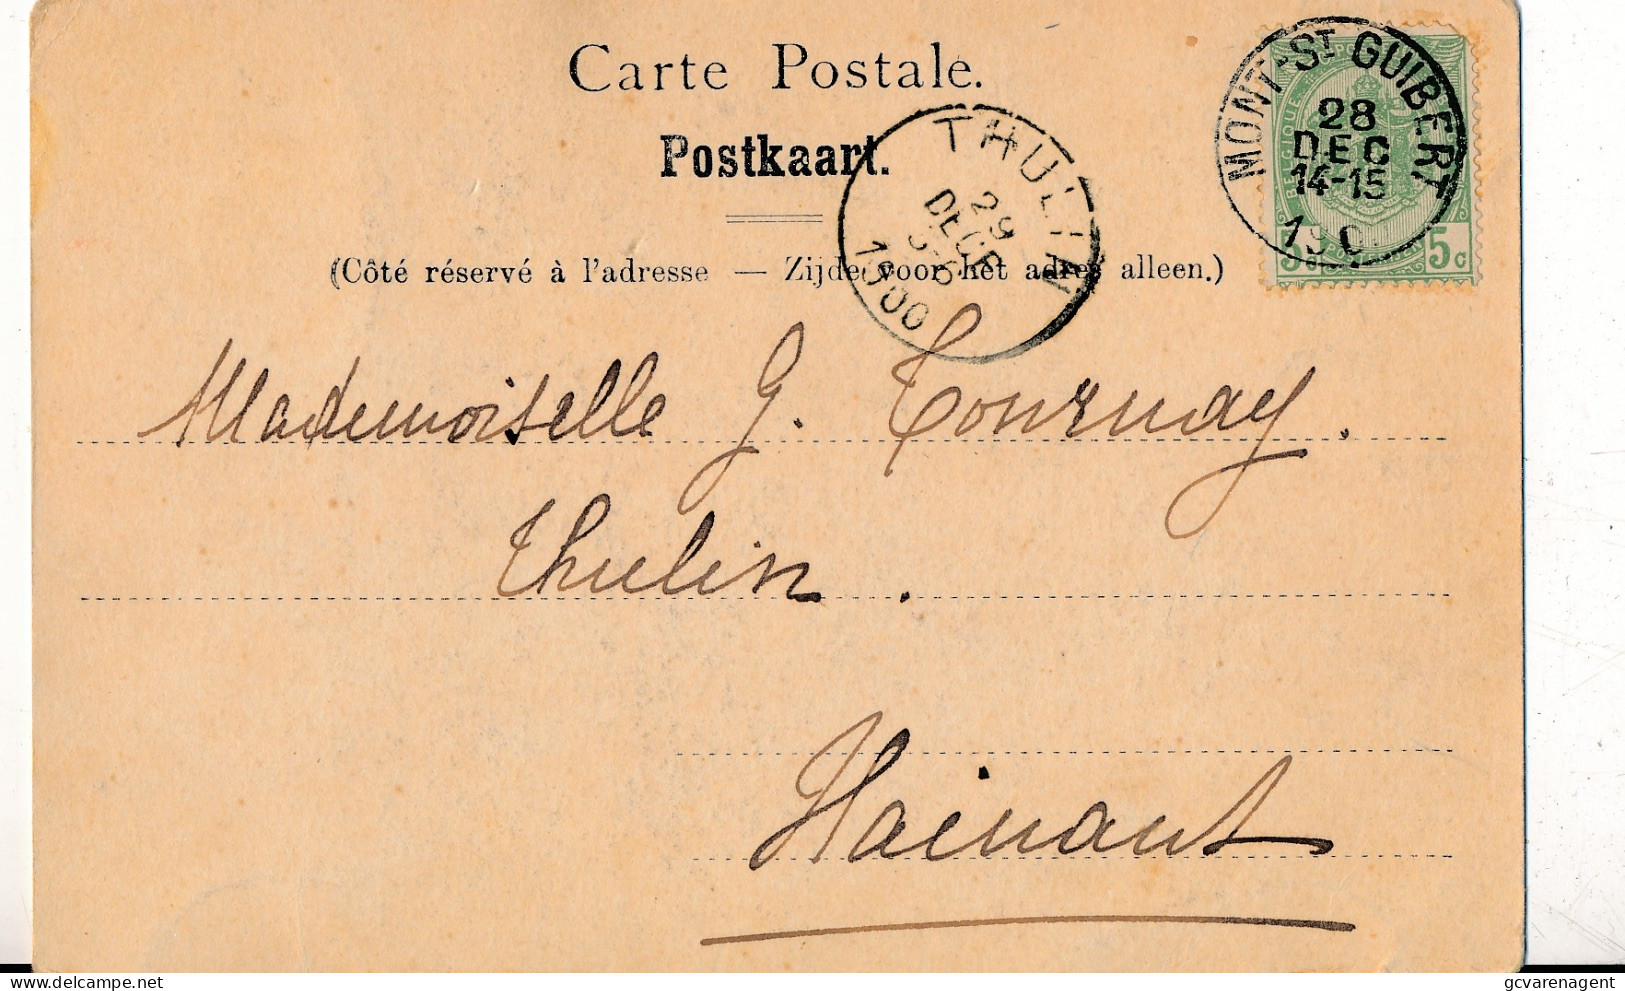 Carte Postale.
Postkaart.
(Côté réservé à l'adresse — Zijde voor het adres alleen.)
MONT-ST GUIBERT
28
DEC
14-15
THULIN
29
DECE
1900
5c 5c
Mademoiselle G. Tournay.
Thulin.
Hainaut
gcvarenagent